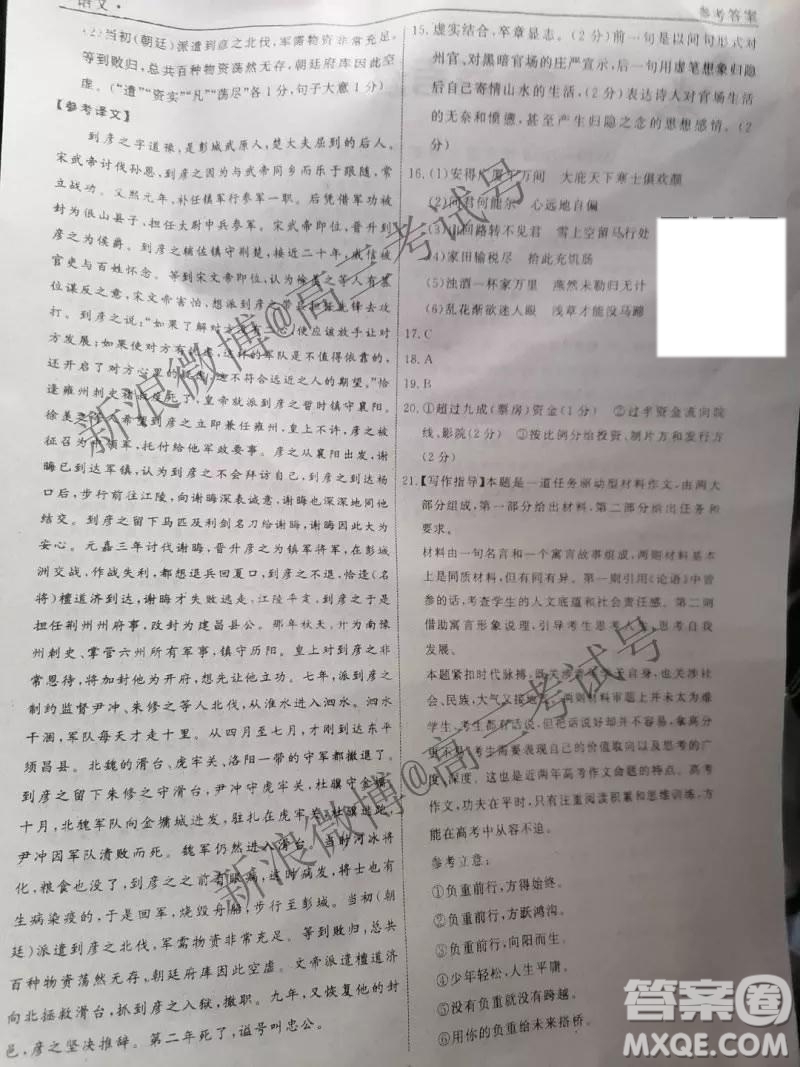 语文·
参考答案
(2)当初(朝廷)派遣到彦之北伐，军需物资非常充足。
等到败归，总共百种物资荡然无存，朝廷府库因此空
虚。(“遣”“资实”“凡”“荡尽”各1分，句子大意1分)
【参考译文】
到彦之字道豫，是彭城武原人，楚大夫屈到的后人。
宋武帝讨伐孙恩，到彦之因为与武帝同乡而乐于跟随，常
立战功。义熙元年，补任镇军行参军一职。后凭借军功被
封为佷山县子，担任太尉中兵参军。宋武帝受命即位，到
彦之为侯爵。到彦之辅佐镇守荆楚，接近二十年，威信被
官史与百姓怀念。等到宋文帝即位，因徐羡之等人有篡
位谋反之意，宋文帝害怕，想派到彦之
打。到彦之说：“如果了解对方
方发展；如果有
还开启了对方心里的
逢雍州刺史
徐羡之
征召为中领军，托付给他军政要事。到彦之从襄阳出发，谢
晦已到达军镇，担心到彦之不会拜访自己。到彦之到达杨
口后，步行前往江陵，向谢晦深表诚意，谢晦也深深地同他
结交。到彦之留下马匹及利剑名刀给谢晦，谢晦因此十分
安心。元嘉三年讨伐谢晦，晋升彦之为镇军将军，在彭城
洲交战，作战失利，大家都想退兵回夏口，到彦之不恰逢(大
将)檀道济到达，谢晦才失败逃走。江陵平定，到彦之于是
担任荆州州府事，改封为建昌县公。那年秋天，升为南豫
州刺史、掌管六州所有军事，镇守历阳。皇上对到彦之非
常恩待，将加封他为开府，想先让他立功。七年，派到彦之
制约监督尹冲、朱修之等人北伐，从淮水进入泗水。泗水
干涸，军队每天才走十里。从四月至七月，才到达东平
须昌县。北魏的滑台、虎牢关、洛阳一带的守军都撤退了。
到彦之留下朱修之守滑台，尹冲守虎牢关，杜骥守金墉。
十月，北魏军队向金墉城进发，驻扎在虎牢关，杜骥逃跑，
尹冲因军队溃败而死。魏军仍然进入滑台。当时河冰将
化，粮食也没了，到彦之之前有眼病，这时病发，将士也有
生病染疫的，于是回军，烧毁舟船，步行至彭城。当初(朝
廷)派遣到彦之北伐，军需物资非常充足。等到败归，总共
百种物资荡然无存，朝廷府库因此空虚。文帝派遣檀道济
向北拯救滑台，抓到彦之入狱，撤职。九年，又恢复他的封
邑，彦之坚决推辞。第二年死了，谥号叫忠公。
15.虚实结合，卒章显志。(2分)前一句是以问句形式对
州官、对黑暗官场的庄严宣示，后一句用虚笔想象归隐
后自己寄情山水的生活，(2分)表达诗人对官场生活
的无奈和愤懑，甚至产生归隐之念的思想感情。(2
分)
16.(1)安得广厦千万间　大庇天下寒士俱欢颜
(2)问君何能尔　心远地自偏
(3)山回路转不见君　雪上空留马行处
(4)家田输税尽　拾此充饥肠
(5)浊酒一杯家万里　燕然未勒归无计
(6)乱花渐欲迷人眼　浅草才能没马蹄
17.C
18.A
19.B
20.①超过九成(票房)资金(1分)　②过半资金流向院
线、影院(2分)　③按比例分给投资、制片方和发行方
(2分)
21.【写作指导】本题是一道任务驱动型材料作文，由两大
部分组成，第一部分给出材料，第二部分给出任务和
要求。
材料由一句名言和一个寓言故事组成，两则材料基本
上是同质材料，但有不同。第一则引用《论语》中曾
参的话，考查学生的人文底道和社会责任感。第二则
借助寓言形象说理，引导考生思考人生，思考自我
发展。
本题紧扣时代脉搏，既关涉考生自身，也关涉社
会、民族，大气又接地气。两则材料审题上并未太为难
学生，考生都有话说，但把话说好却并不简单，
更不易(考生需要表现自己的价值取向以及思考的广
度、深度。这也是近两年高考作文命题的特点。高考
作文，功夫在平时，只有注重阅读积累和思维训练，方
能在高考中从容不迫。
参考立意：
①负重前行，方得始终。
②负重前行，方跃鸿沟。
③负重前行，向阳而生。
④少年轻松，人生平庸。
⑤没有负重就没有跨越。
⑥用你的负重给未来搭桥。
新浪微博@高三考试号
新浪微博@高三考试号
答案圈
MXQE.COM